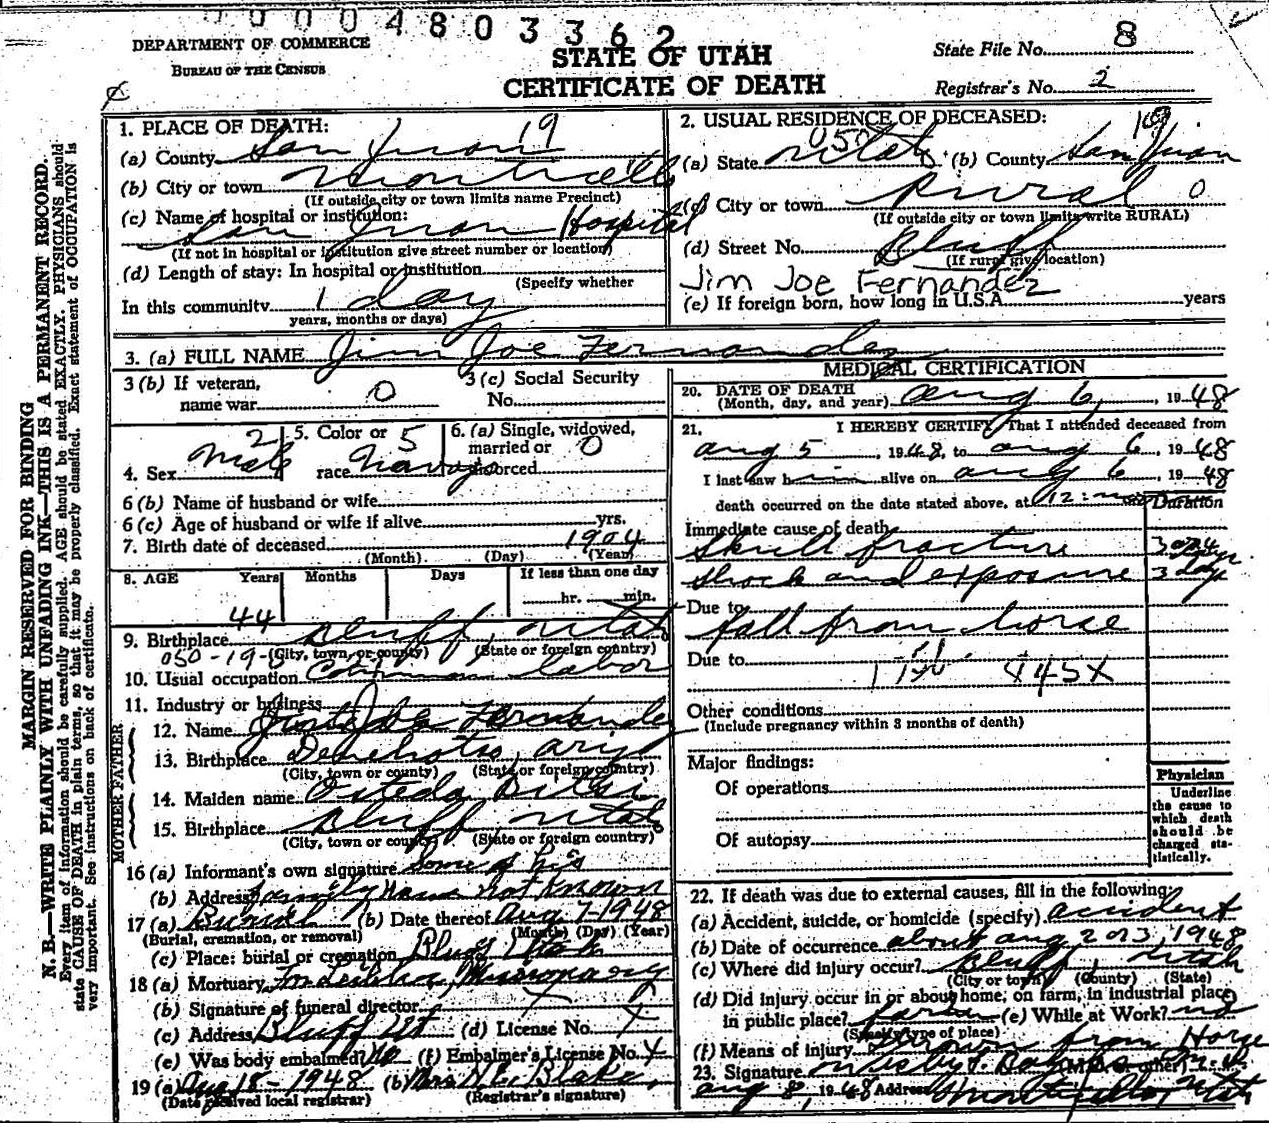 00004803362
DEPARTMENT OF COMMERCE
BUREAU OF THE CENSUS
STATE OF UTAH
CERTIFICATE OF DEATH
State File No. 8
Registrar's No. 2
MARGIN RESERVED FOR BINDING
N. B.—WRITE PLAINLY WITH UNFADING INK—THIS IS A PERMANENT RECORD.
Every item of information should be carefully supplied. AGE should be stated EXACTLY. PHYSICIANS should
state CAUSE OF DEATH in plain terms, so that it may be properly classified. Exact statement of OCCUPATION is
very important. See instructions on back of certificate.
1. PLACE OF DEATH: 19
(a) County San Juan
(b) City or town Monticello
(If outside city or town limits name Precinct)
(c) Name of hospital or institution:
San Juan Hospital
(If not in hospital or institution give street number or location)
(d) Length of stay: In hospital or institution
(Specify whether
In this community 1 day
years, months or days)
2. USUAL RESIDENCE OF DECEASED:
050
(a) State Utah (b) County San Juan
(c) City or town Rural 0
(If outside city or town limits write RURAL)
(d) Street No. Bluff
(If rural give location)
Jim Joe Fernandez
(e) If foreign born, how long in U.S.A. years
3. (a) FULL NAME Jim Joe Fernandez
3 (b) If veteran,
name war 0
3 (c) Social Security
No.
4. Sex Male 2
5. Color or 5
race Navajo
6. (a) Single, widowed,
married or 0
divorced
6 (b) Name of husband or wife
6 (c) Age of husband or wife if alive yrs.
7. Birth date of deceased 1904
(Month) (Day) (Year)
8. AGE Years Months Days If less than one day
44 hr. min.
9. Birthplace Bluff, Utah
(City, town, or county) (State or foreign country)
050-19-0
10. Usual occupation Common labor
11. Industry or business
FATHER
12. Name Joe Fernandez
13. Birthplace Dennehotso, Ariz
(City, town or county) (State or foreign country)
MOTHER
14. Maiden name
15. Birthplace Bluff, Utah
(City, town or county) (State or foreign country)
16 (a) Informant's own signature Some of his
(b) Address family name not known
17 (a) Burial (b) Date thereof Aug 7-1948
(Burial, cremation, or removal) (Month) (Day) (Year)
(c) Place: burial or cremation Bluff Utah
18 (a) Mortuary Missionary
(b) Signature of funeral director X
(c) Address Bluff Ut (d) License No. X
(e) Was body embalmed? No (f) Embalmer's License No. X
19 (a) Aug 18-1948 (b) Mrs. Blake
(Date received local registrar) (Registrar's signature)
MEDICAL CERTIFICATION
20. DATE OF DEATH
(Month, day, and year) Aug 6, 1948
21. I HEREBY CERTIFY That I attended deceased from
Aug 5, 1948, to Aug 6, 1948
I last saw him alive on Aug 6, 1948
death occurred on the date stated above, at 12: noon
Duration
Immediate cause of death
Skull fracture 3 days
Shock and exposure 3 days
Due to
fall from horse
Due to
845X
Other conditions
(Include pregnancy within 3 months of death)
Major findings:
Of operations
Of autopsy
Physician
Underline
the cause to
which death
should be
charged sta-
tistically.
22. If death was due to external causes, fill in the following:
(a) Accident, suicide, or homicide (specify) accident
(b) Date of occurrence about Aug 2 or 3, 1948
(c) Where did injury occur? Bluff, Utah
(City or town) (County) (State)
(d) Did injury occur in or about home, on farm, in industrial place
in public place? farm (e) While at Work? no
(Specify type of place)
(f) Means of injury Thrown from Horse
23. Signature (M.D. or other) M.D.
Aug 8, 1948 Address Monticello, Utah